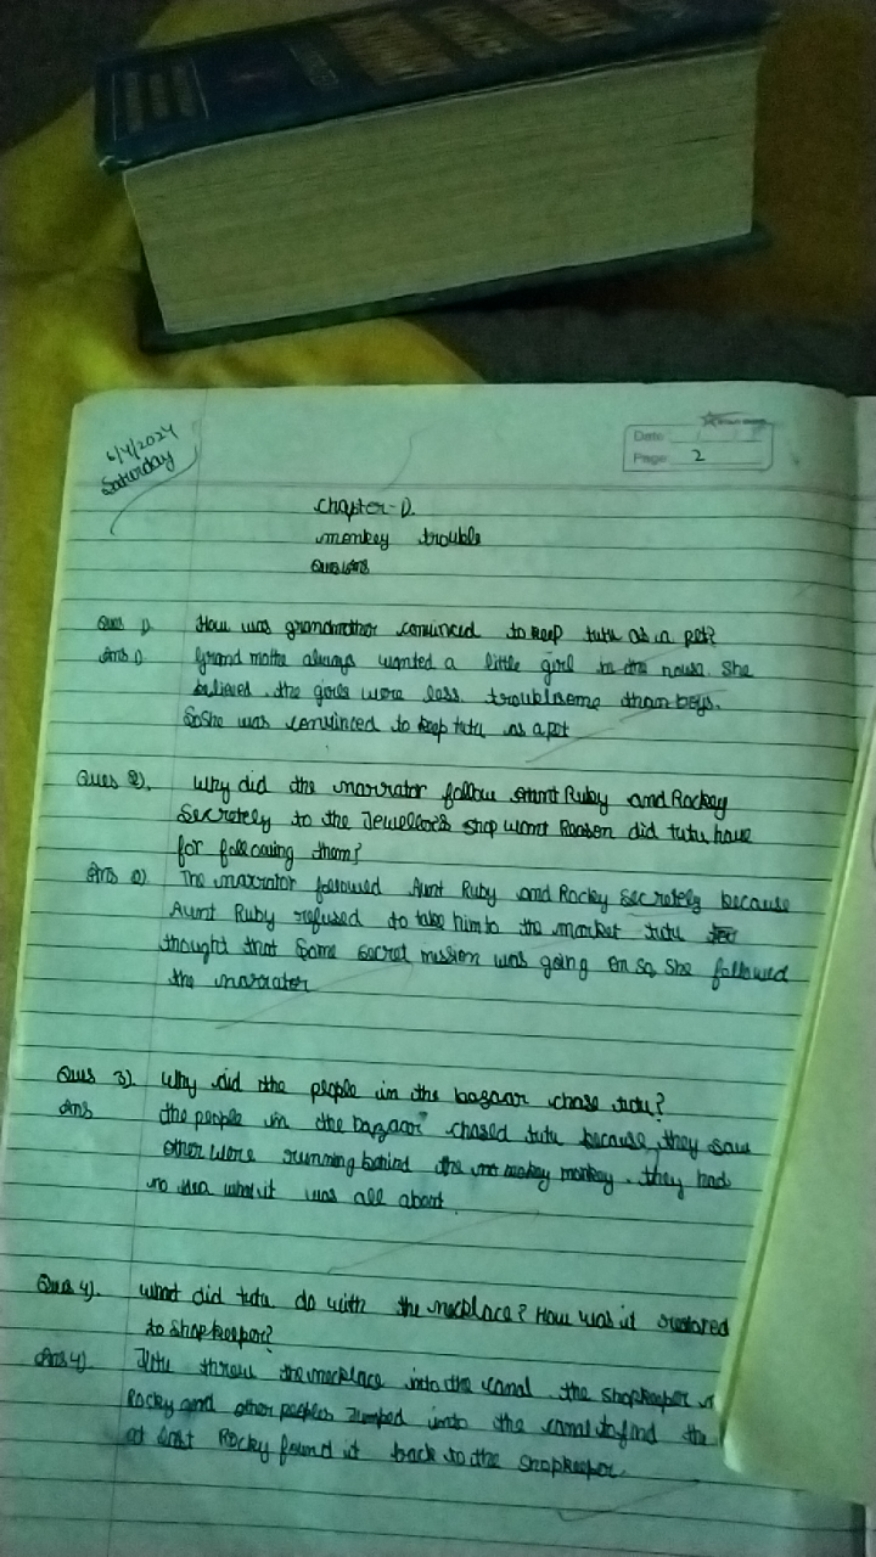 6/4/2024
Saturday
Date
Page 2
Chapter-1).
monkey trouble
Ques 1). How was grandmother convinced to keep tutu as a pet?
Ans 1) Grand mothe always wanted a little girl in the house. She
belived the girls were less troublesome than boys.
So She was convinced to keep tutu as a pet
Ques 2). Why did the narrator follow Aunt Ruby and Rockey
Secretely to the Jeweller's shop want Reason did tutu have
for following them?
Ans 2) The narrator followed Aunt Ruby and Rocky Secretely because
Aunt Ruby refused to take him to the market tutu
thought that Some secret mission was going on so, She followed
the narrater
Ques 3). Why did the people in the bazaar chase tutu?
Ans the people in the bazaar chased tutu because, they saw
other were running behind the monkey. they had
no idea what it was all about.
Ques 4). What did tutu do with the necklace? How was it restored
to Shopkeeper?
Ans 4) Tutu threw the necklace into the canal. the Shopkeeper
Rocky and other peoples Jumped into the canal to find the
at last Rocky found it back to the Shopkeeper.